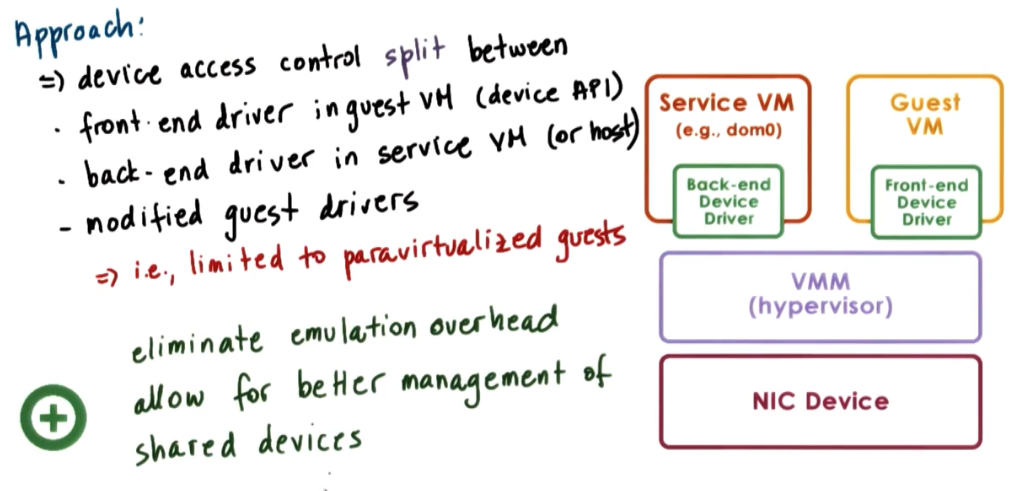 Approach:
=> device access control split between
· front-end driver in guest VM (device API)
· back-end driver in service VM (or host)
- modified guest drivers
=> i.e., limited to paravirtualized guests
eliminate emulation overhead
allow for better management of
shared devices
+
Service VM
(e.g., dom0)
Back-end
Device
Driver
Guest
VM
Front-end
Device
Driver
VMM
(hypervisor)
NIC Device